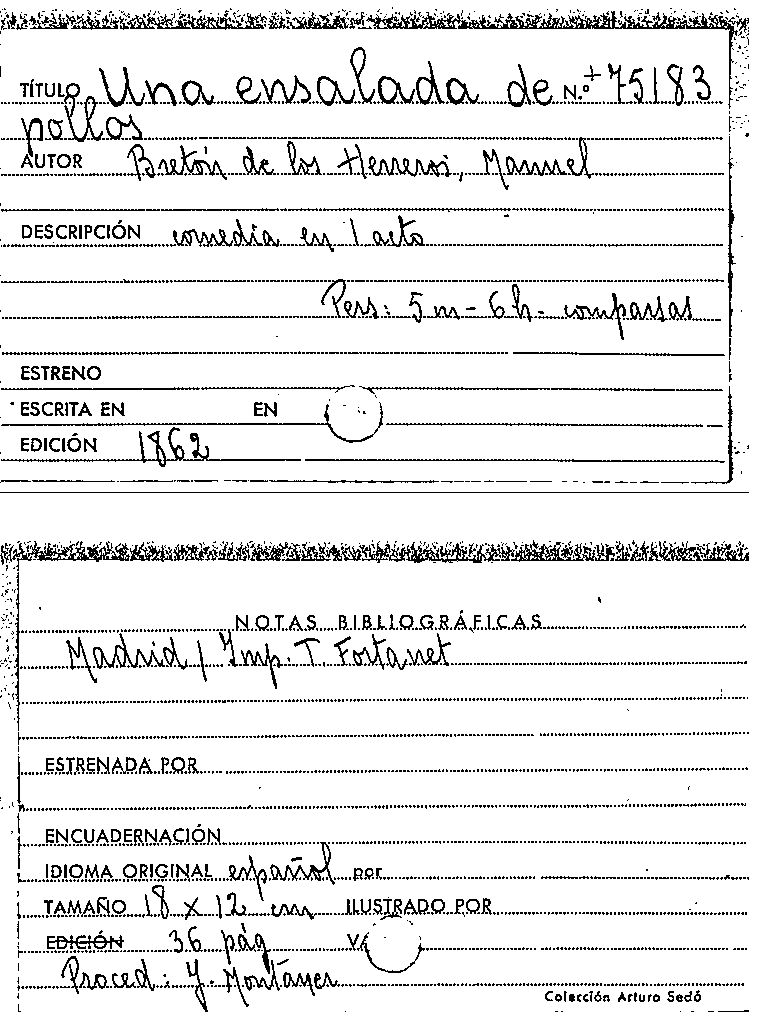 TÍTULO Una ensalada de N.º + 75183
pollos
AUTOR Bretón de los Herreros, Manuel
DESCRIPCIÓN comedia en 1 acto
Pers: 5 m - 6 h - comparsas
ESTRENO
ESCRITA EN EN
EDICIÓN 1862
NOTAS BIBLIOGRÁFICAS
Madrid / Imp. T. Fortanet
ESTRENADA POR
ENCUADERNACIÓN
IDIOMA ORIGINAL español por
TAMAÑO 18 x 12 cm ILUSTRADO POR
EDICIÓN 36 pág
Proced: Y. Montaner
Colección Arturo Sedó